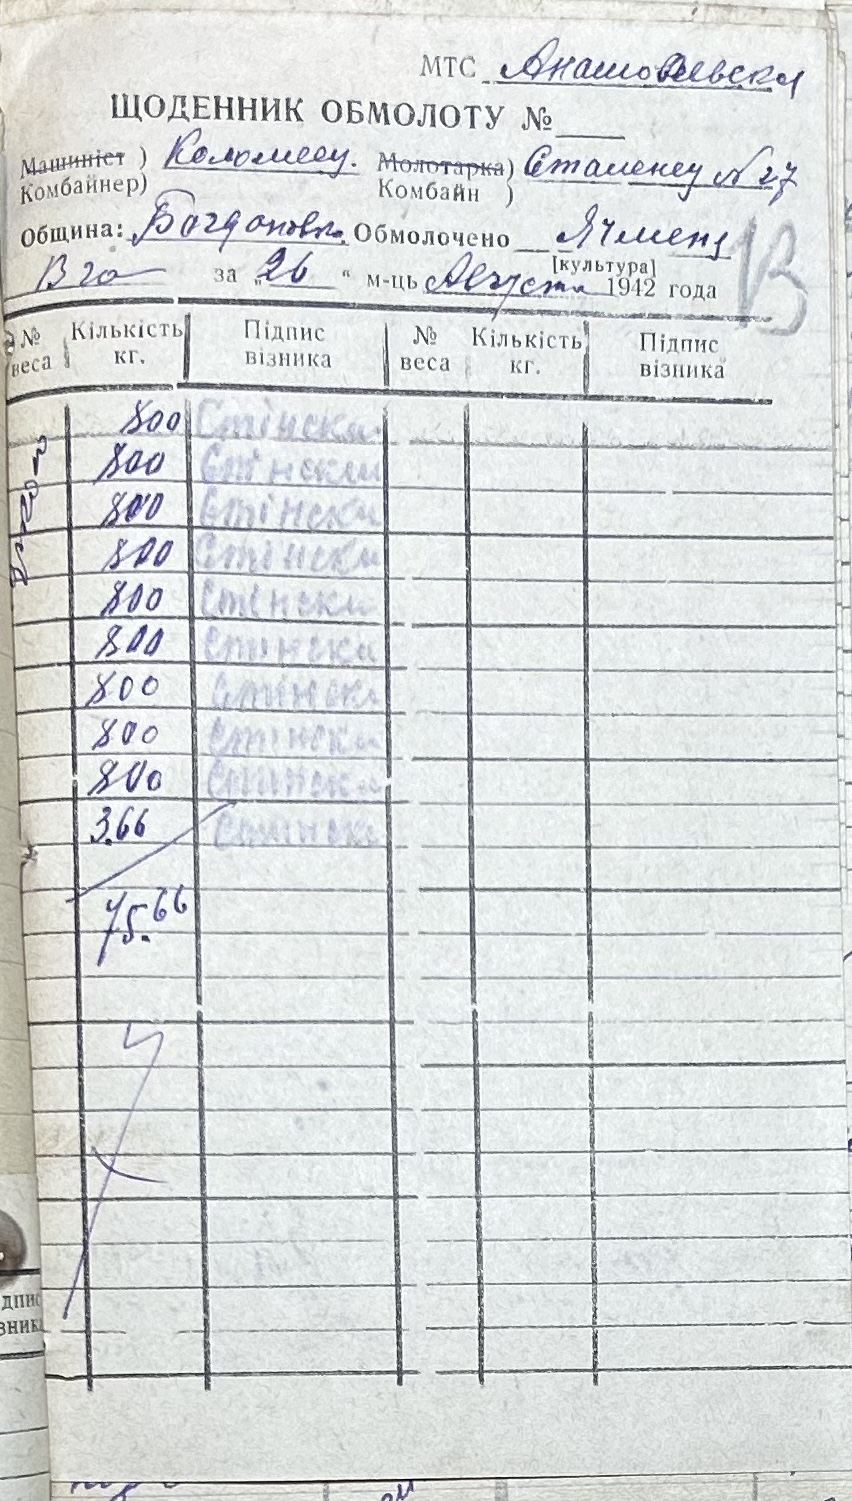 МТС Анатовевская
ЩОДЕННИК ОБМОЛОТУ №
Машиніст ) Коломеец. Молотарка) Сталенец № 27
Комбайнер) Комбайн )
Община: Богдановка Обмолочено Ячменя
[культура]
за „26“ м-ць Августа 1942 года
№ веса Кількість кг. Підпис візника № веса Кількість кг. Підпис візника
800 Стінски
800 Стінски
800 Стінски
800 Стінски
800 Стінски
800 Стінски
800 Стінски
800 Стінски
800 Стінски
3.66 Стінски
75.66
дпис
зника